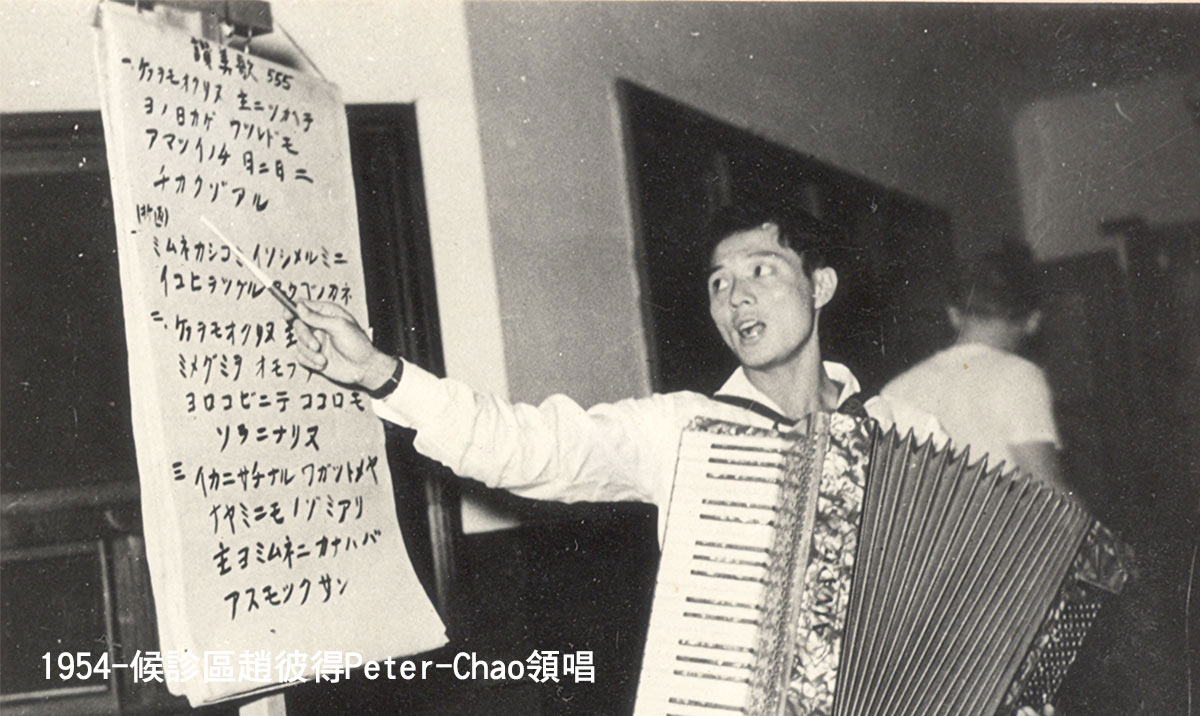 讃美歌 555
一、ケフヲモオクリヌ 主ニツカヘテ
ヨノ日カゲ ウツレドモ
アマツイノチ 日ニ日ニ
チカクゾアル
ミムネカシコミ イソシメルミニ
イコヒヲツグル ユウベノカネ
二、ケフヲモオクリヌ 主
ミメグミヲ オモフ
ヨロコビニテ ココロモ
ソラニナリヌ
三 イカニサチナル ワガツトメヤ
ナヤミニモノゾミアリ
主ヨミムネニ カナハバ
アスモツクサン
1954-候診區趙彼得Peter-Chao領唱